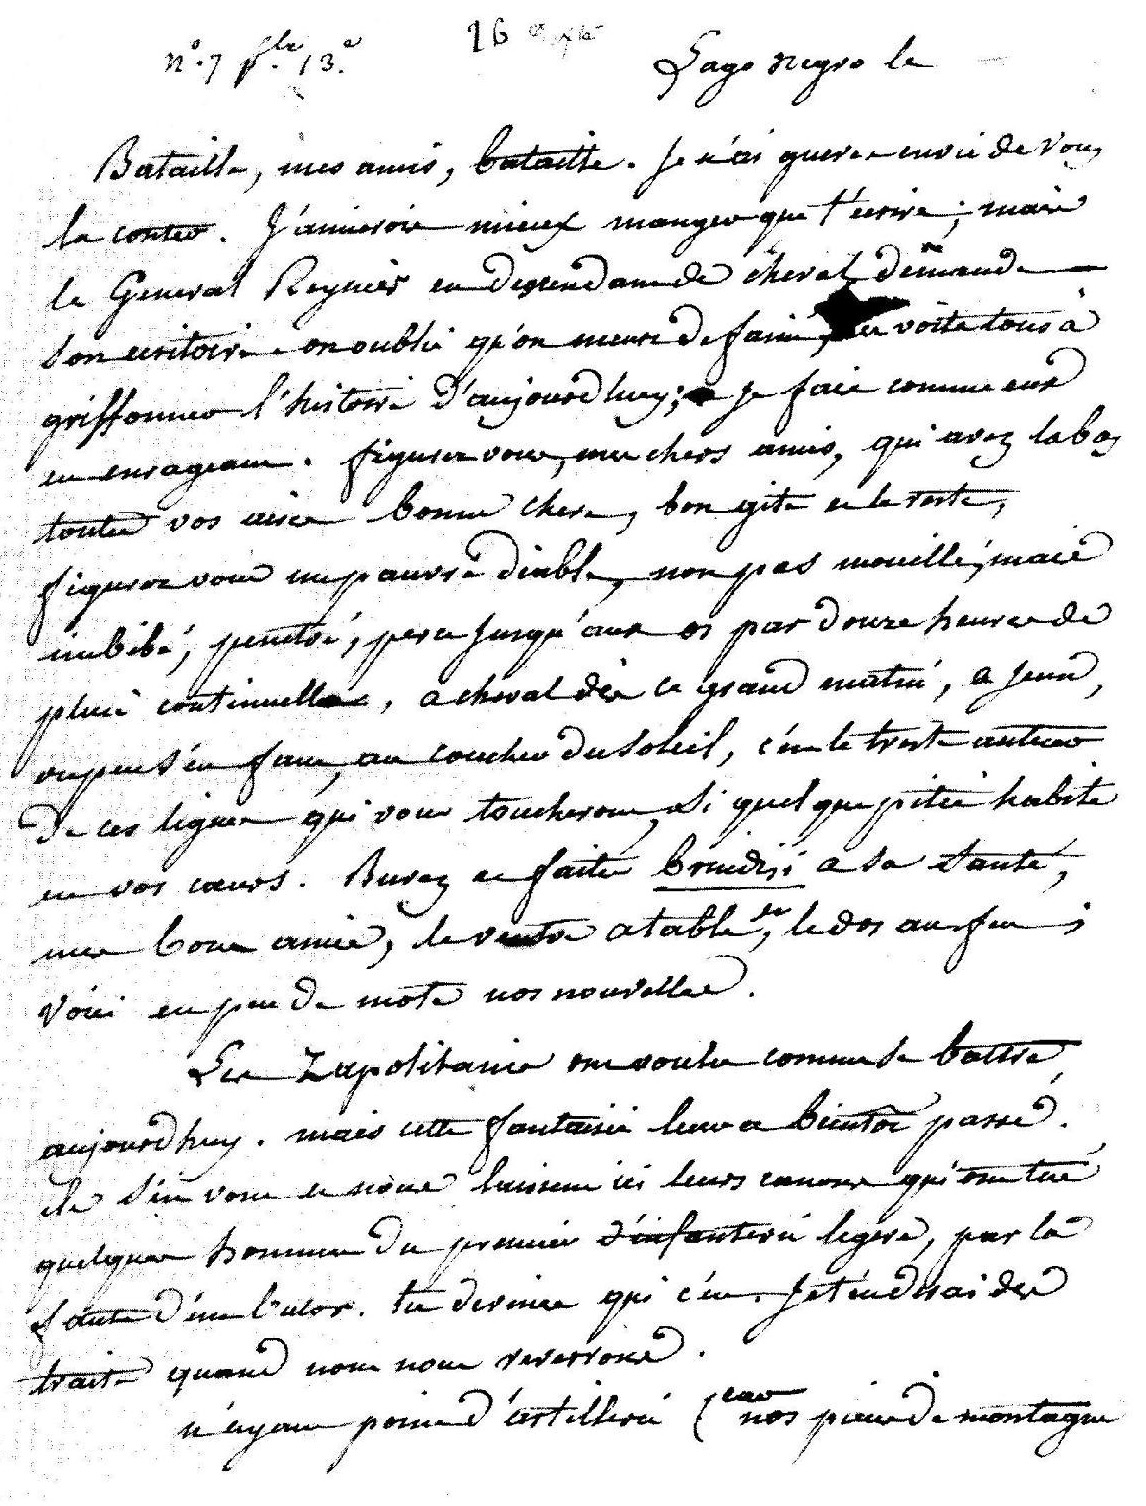 n.° 7 p.le 13.e 26
Lago negro le
Bataille, mes amis, bataille. Je n'ai guere envie de vous
la conter. J'aimerois mieux manger que t'ecrire; mais
le General Reynier en descendant de cheval demande
son ecritoire. on oublie qu'on meurt de faim, les voila tous à
griffonner l'histoire d'aujourdhuy; Je fais comme eux
en enrageant. figurez vous, mes chers amis, qui avez la bas
toutes vos aises bonne chere, bon gite et le reste,
figurez vous un pauvre diable, non pas mouillé, mais
imbibé, penetré, percé jusqu'aux os par douze heures de
pluie continuelle, a cheval dès ce grand matin, a jeun,
ou peu s'en faut, au coucher du soleil, c'est le triste auteur
de ces lignes qui vous toucheront, si quelque pitié habite
en vos cœurs. Buvez et faites brindisi a sa santé,
mes bons amis, le ventre a table, et le dos au feu;
Voici en peu de mots nos nouvelles.
Les Zapolitains ont voulu comme se battre
aujourdhuy. mais cette fantaisie leur a bientôt passé.
ils s'en vont et nous laissent ici leurs canons qui ont tué
quelques hommes du premier d'infanterie legere, par la
faute d'un butor. tu devines qui c'est. Je t'en dirai des
traits quand nous nous reverrons.
n'ayant point d'artillerie (car nos pieces de montagne